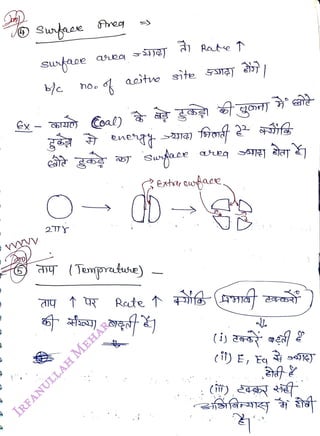 ④ Surface Area ⇒
surface area ⇒ ज्यादा तो Rate ↑
b/c no. of acitve site ज्यादा होंगे।
Ex - कोयले (Coal) के बड़े टुकड़ो की तुलना में छोटे
टुकड़े से energy ज्यादा मिलती है क्योंकि
छोटे टुकड़े का surface area ज्यादा होता है।
Extra surface
2πr
⑤ ताप (Temprature) -
ताप ↑ पर Rate ↑ क्योंकि प्रभावी टक्करों
की संख्या बढ़ती है।
(i) टक्करें बढ़ती है
(ii) E, Ea से ज्यादा
होती है
(iii) टक्कर सही
अभिविन्यास में होती
है।
IRFANULLAH MEHAR